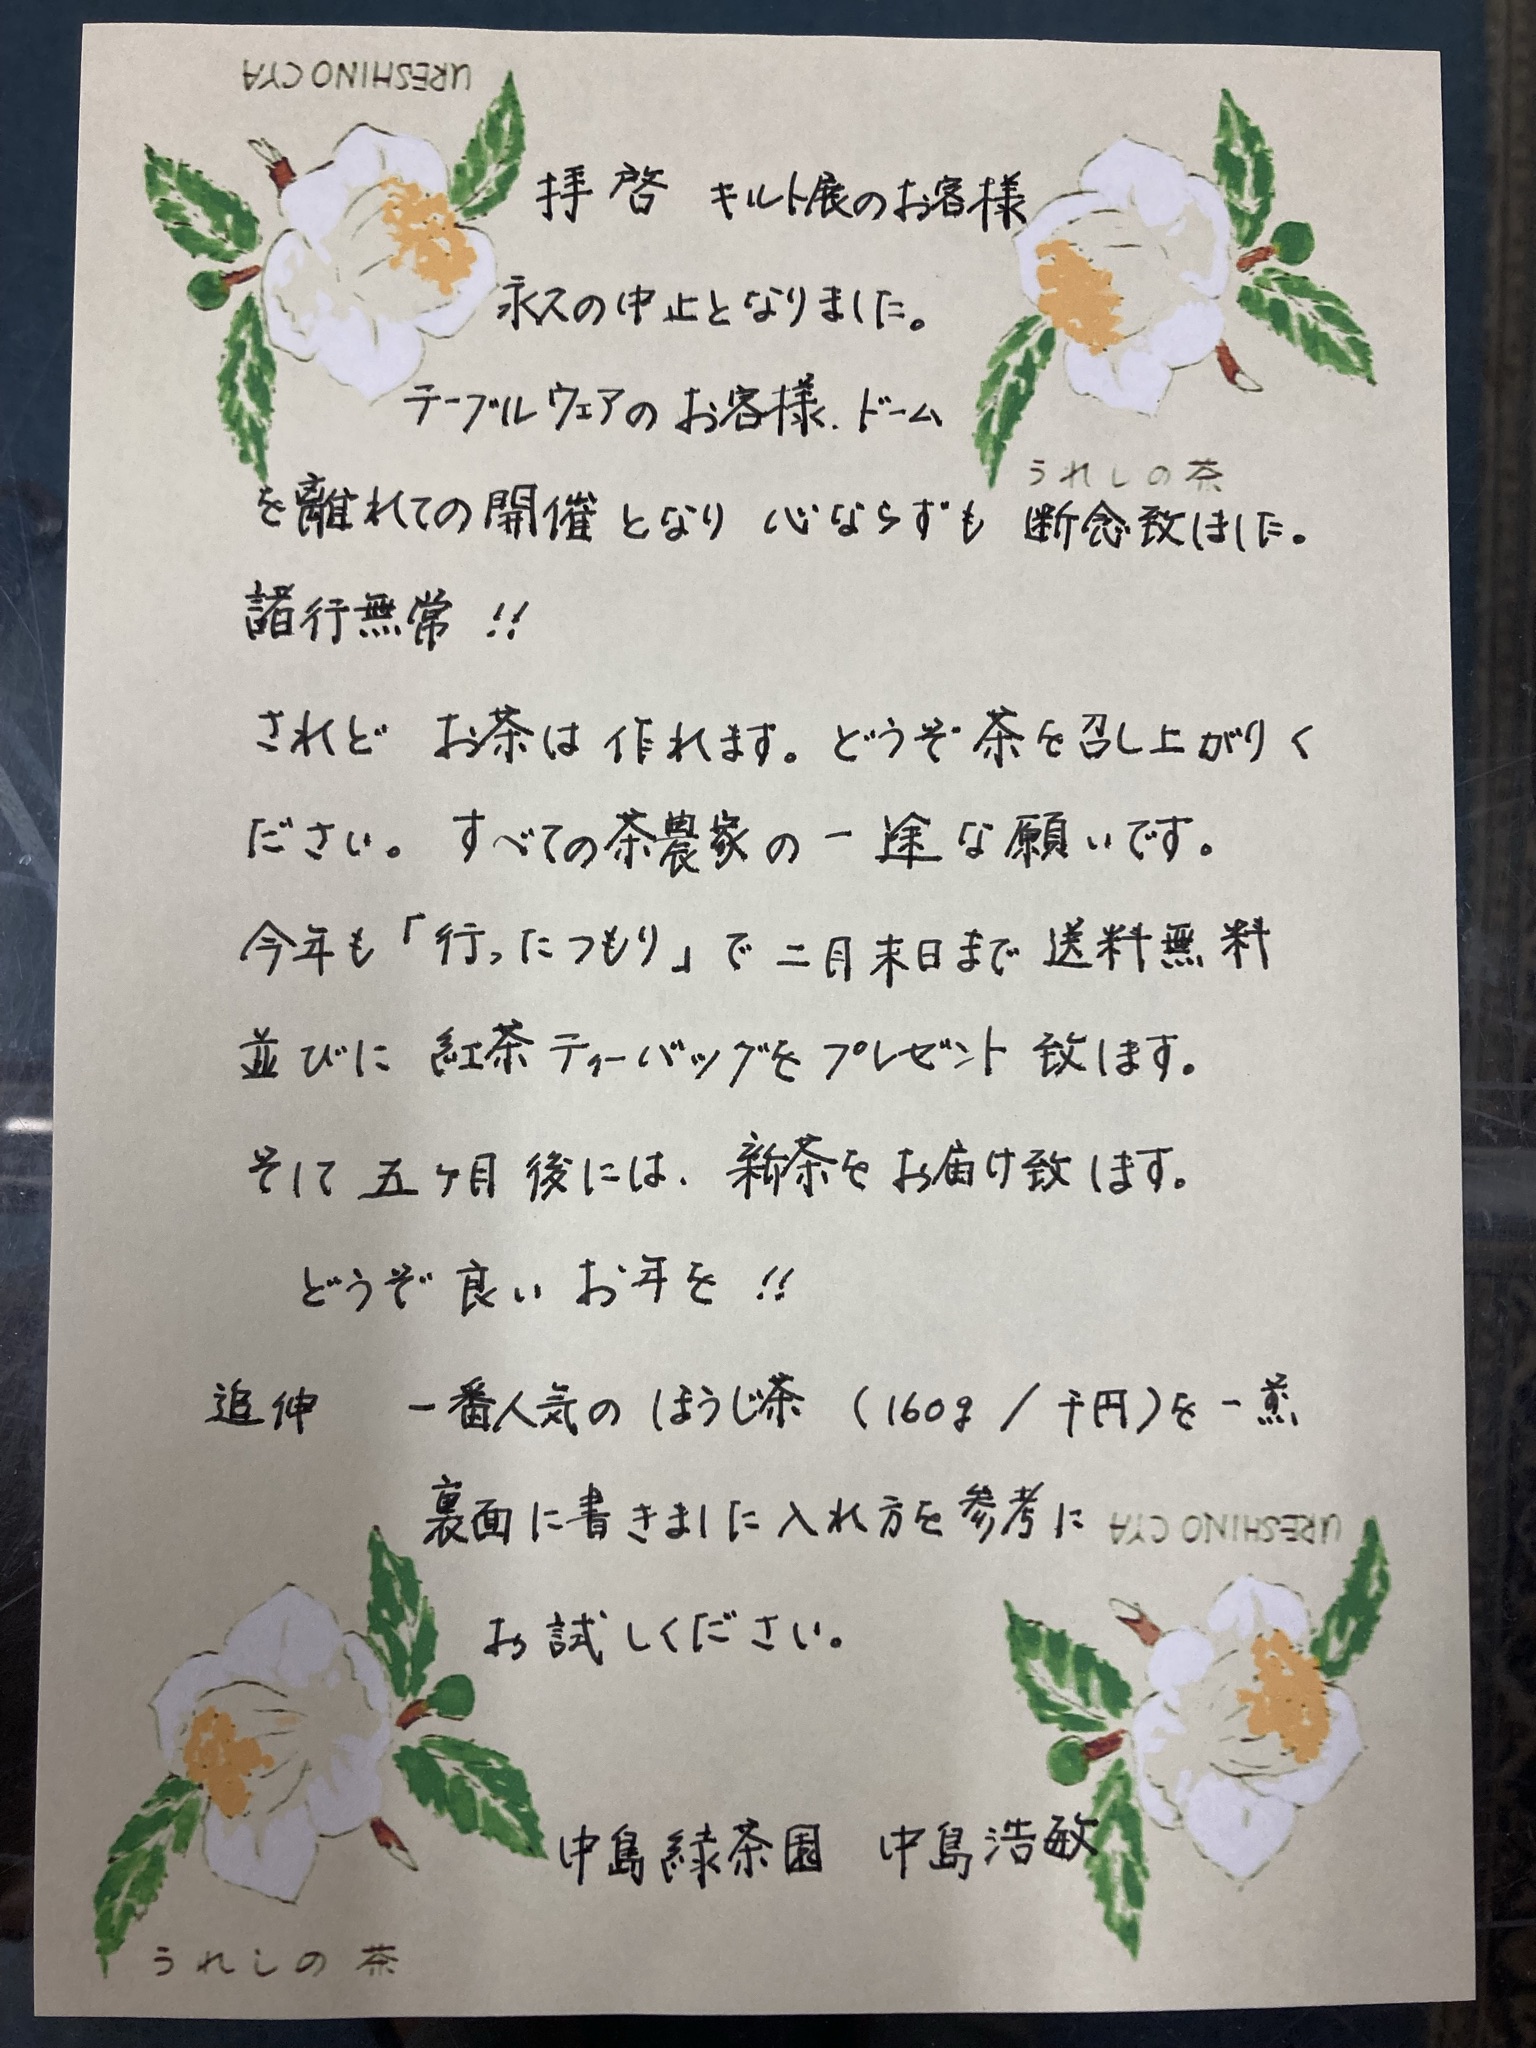 URESHINO CYA
拝啓 キルト展のお客様
永久の中止となりました。
テーブルウェアのお客様、ドーム
うれしの茶
を離れての開催となり 心ならずも 断念致しました。
諸行無常!!
されど お茶は作れます。どうぞ茶を召し上がりく
ださい。すべての茶農家の一途な願いです。
今年も「行ったつもり」で二月末日まで送料無料
並びに 紅茶ティーバッグをプレゼント致します。
そして五ヶ月後には、新茶をお届け致します。
どうぞ良いお年を!!
追伸 一番人気のほうじ茶(160g/千円)を一煎
裏面に書きました入れ方を参考に
URESHINO CYA
お試しください。
中島緑茶園 中島浩敏
うれしの茶